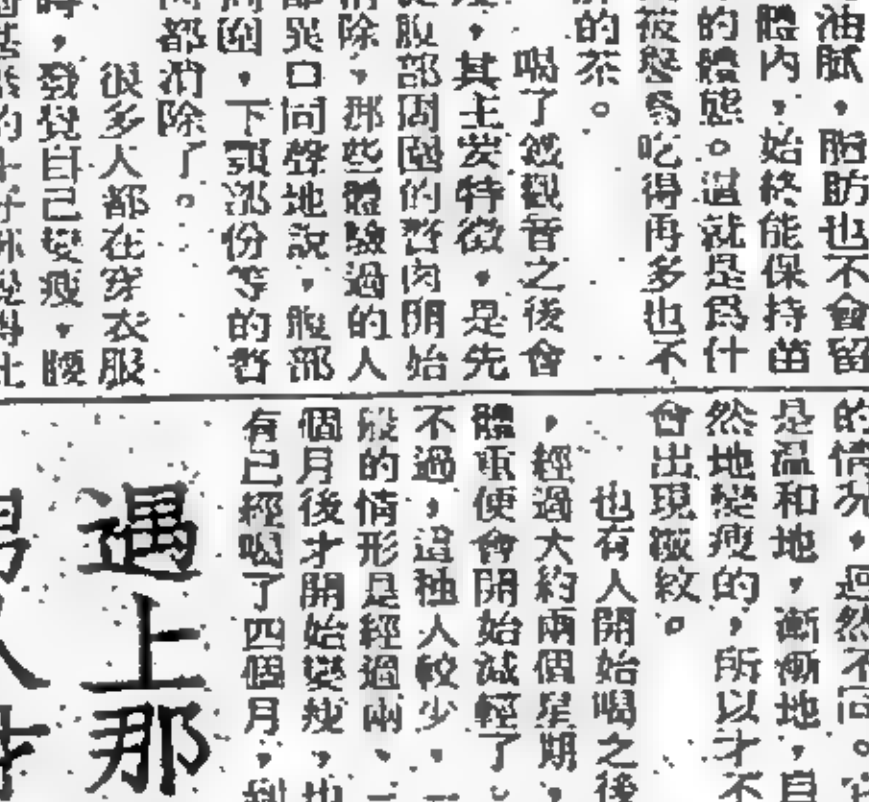 油膩，脂肪也不會留
體內，始終能保持苗
的體態。這就是爲什
被譽爲吃得再多也不
的茶。
喝了鐵觀音之後會
，其主要特徵，是先
腹部周圍的贅肉開始
消除，那些體驗過的人
都異口同聲地說，腹部
周圍，下顎部份等的贅
肉都消除了。
很多人都在穿衣服
時，發覺自己變瘦，腰
的情况，迥然不同。
是溫和地，漸漸地，自
然地變瘦的，所以才不
會出現皺紋。
也有人開始喝之後
，經過大約兩個星期，
體重便會開始減輕了。
不過，這種人較少，一
般的情形是經過兩、一
個月後才開始變瘦，也
有已經喝了四個月，
遇上那
男人